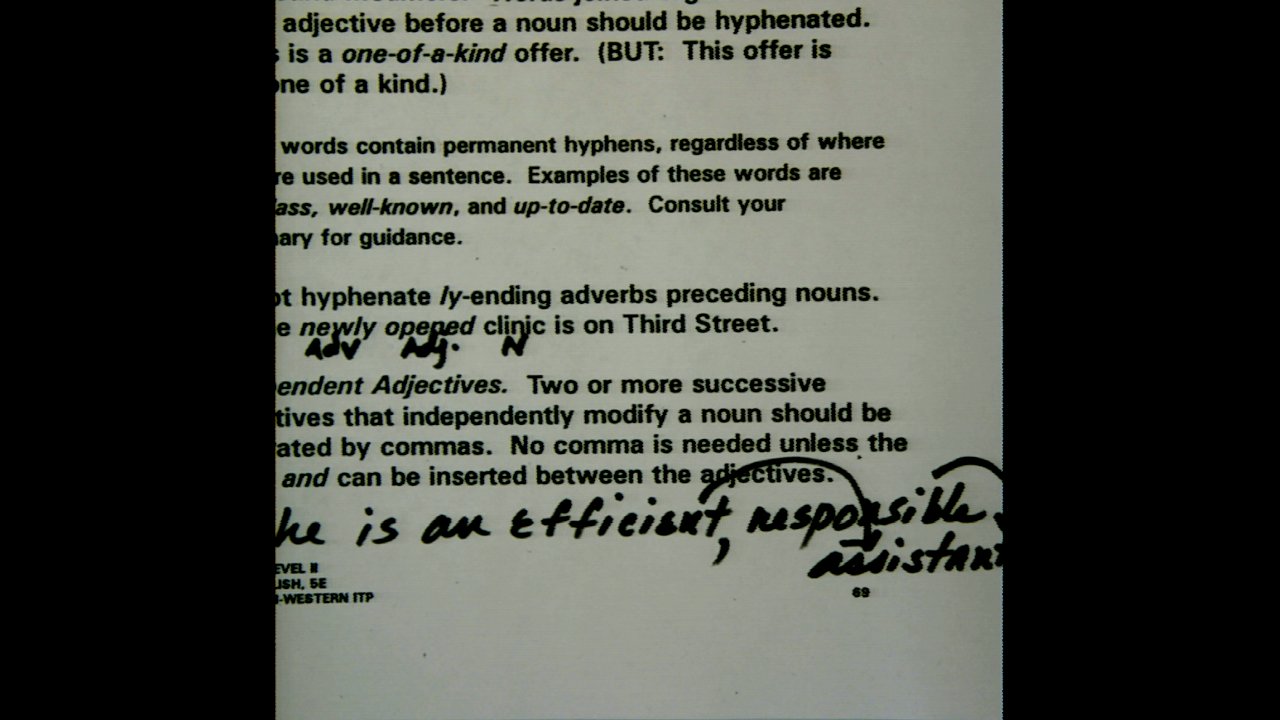 adjective before a noun should be hyphenated.
is a one-of-a-kind offer. (BUT: This offer is
one of a kind.)
words contain permanent hyphens, regardless of where
re used in a sentence. Examples of these words are
ass, well-known, and up-to-date. Consult your
ary for guidance.
ot hyphenate ly-ending adverbs preceding nouns.
e newly opened clinic is on Third Street.
Adv Adj. N
endent Adjectives. Two or more successive
tives that independently modify a noun should be
ated by commas. No comma is needed unless the
and can be inserted between the adjectives.
he is an Efficient, responsible
assistant
EVEL II
ISH, 5E
-WESTERN ITP
69